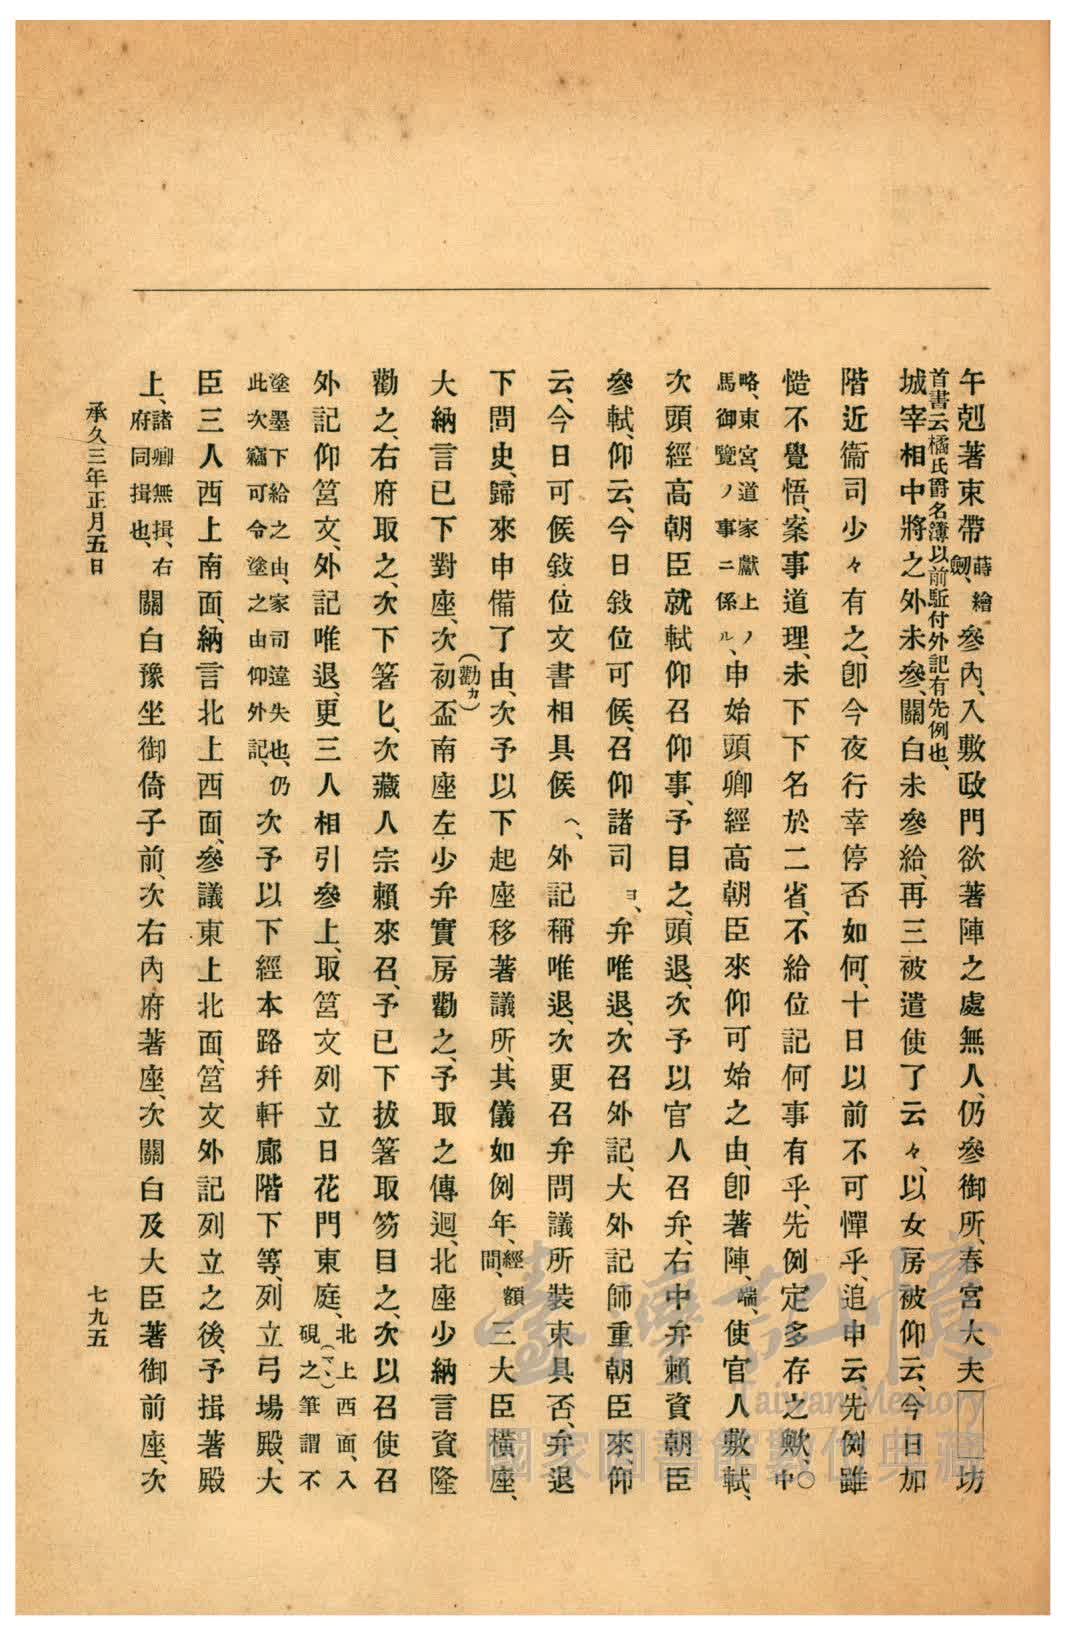 午剋著束帶蒔繪劔、參內、入敷政門欲著陣之處無人、仍參御所、春宮大夫坊
首書云橘氏爵名簿以前駈付外記有先例也、
城宰相中將之外未參、關白未參給、再三被遣使了云々、以女房被仰云、今日加
階近衞司少々有之、卽今夜行幸停否如何、十日以前不可憚乎、追申云先例雖
慥不覺悟、案事道理、未下下名於二省、不給位記何事有乎、先例定多存之歟、〇中
略、東宮、道家獻上ノ馬御覽ノ事ニ係ル、申始頭卿經高朝臣來仰可始之由、卽著陣、端、使官人敷軾、
次頭經高朝臣就軾仰召仰事、予目之、頭退、次予以官人召弁、右中弁賴資朝臣
參軾、仰云、今日敍位可候、召仰諸司ヨ、弁唯退、次召外記、大外記師重朝臣來仰
云、今日可候敍位文書相具候へ、外記稱唯退、次更召弁問議所裝束具否、弁退
下問史、歸來申備了由、次予以下起座移著議所、其儀如例年、經額間、三大臣橫座、
大納言已下對座、次初(勸カ)盃南座左少弁實房勸之、予取之傳迴、北座少納言資隆
勸之、右府取之、次下箸匕、次藏人宗賴來召、予已下拔箸取笏目之、次以召使召
外記仰筥文、外記唯退、更三人相引參上、取筥文列立日花門東庭、北上西面、入硯之筆謂(マヽ)不
塗墨下給之由、家司違失也、仍此次竊可令塗之由仰外記、次予以下經本路幷軒廊階下等、列立弓場殿、大
臣三人西上南面、納言北上西面、參議東上北面、筥文外記列立之後、予揖著殿
上、諸卿無揖、右府同揖也、關白豫坐御倚子前、次右內府著座、次關白及大臣著御前座、次
承久三年正月五日
七九五
臺灣記憶
Taiwan Memory
國家圖書館數位典藏